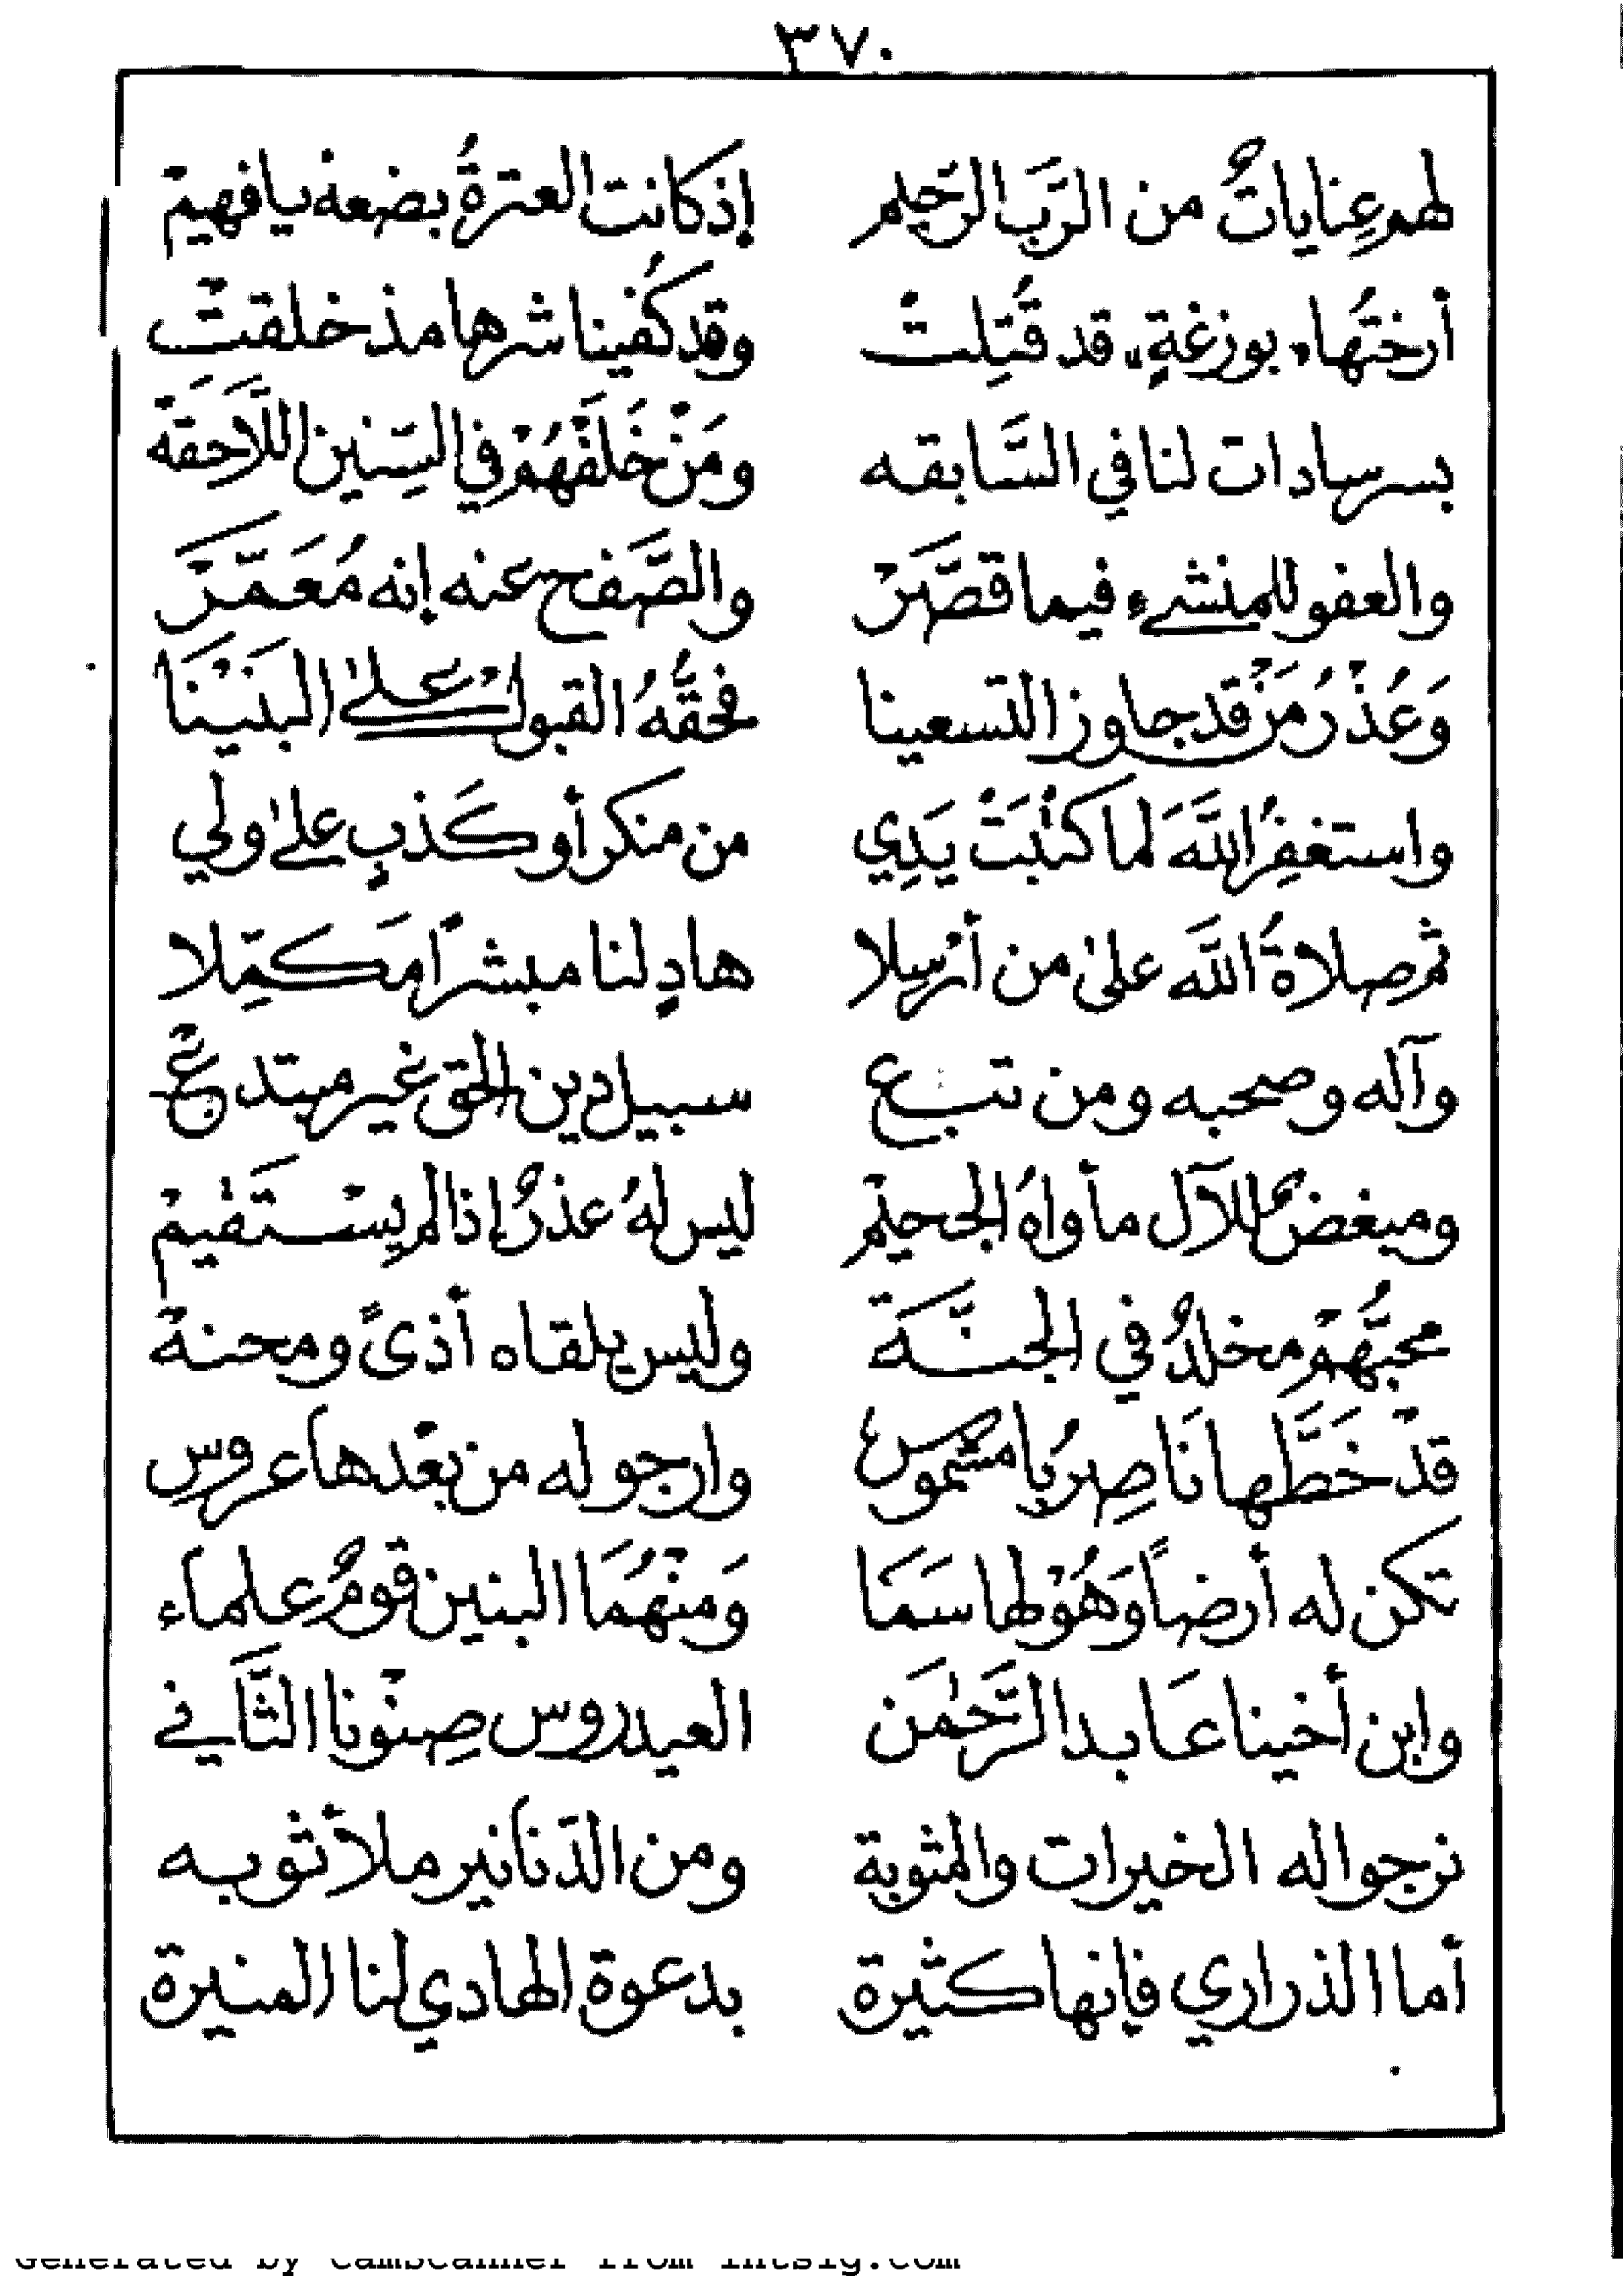 ٣٧٠
لهم عِنايات من الرَّب الرَّحيم إذ كانت العترةُ بضعهْ يا فهيمْ
أرختُها «بوزغةٍ» قد قُتِلتْ وقد كُفينا شرها مذ خلقتْ
بسر سادات لنا في السَّابقه ومَنْ خَلَفْهُمْ في السِّنين اللَّاحِقَهْ
والعفو للمنشيء فيما قصَّرْ والصَّفح عنه إنه مُعَمَّرْ
وَعُذْرُ مَنْ قد جاوز التسعينا فحقُّهُ القبولْ على البَنَيْنَا
واستغفِرُ اللَّهَ لما كتُبَتْ يَدِي من منكر أو كَذبٍ علىٰ ولي
ثم صلاةُ اللَّه علىٰ من أرْسِلا هادٍ لنا مبشراً مَكمِّلا
وآله وصحبه ومن تبع سبيل دين الحق غير مبتدعْ
ومبغضٌ للآل مأواهُ الجحيْم ليس لهُ عذرٌ إذا لم يِسْتَقيمْ
محبُّهمْ مخلدٌ في الجنَّة وليس يلقاه أذىً ومحنة
قدْ خَطَّها نَاصِرُ بامشموس وارجو له من بعْدها عروس
تكن له أرضاً وَهُوْ لها سَمَا وَمنْهُمَا البنين قومٌ علماء
وابن أخينا عَابد الرَّحْمٰن العيدروس صِنْونا الثَّاني
نرجوا له الخيرات والمثوبة ومن الدَّنانير ملأ ثوبه
أما الذراري فإنها كثيرة بدعوة الهادي لنا المنيرة
Generated by CamScanner from intsig.com